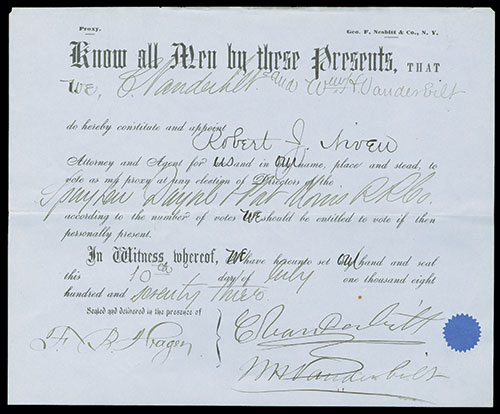 Proxy.
Geo. F. Nesbitt & Co., N. Y.
Know all Men by these Presents, THAT
We, C. Vanderbilt and Wm H Vanderbilt
do hereby constitute and appoint
Robert J. Niven
Attorney and Agent for us and in our name, place and stead, to
vote as my proxy at any election of Directors of the
Spuyten Duyvil & Port Morris RR Co.
according to the number of votes We should be entitled to vote if then
personally present.
In Witness whereof, We have hereunto set our hand and seal
this 10th day of July one thousand eight
hundred and seventy three
Sealed and delivered in the presence of
C Vanderbilt
WH Vanderbilt